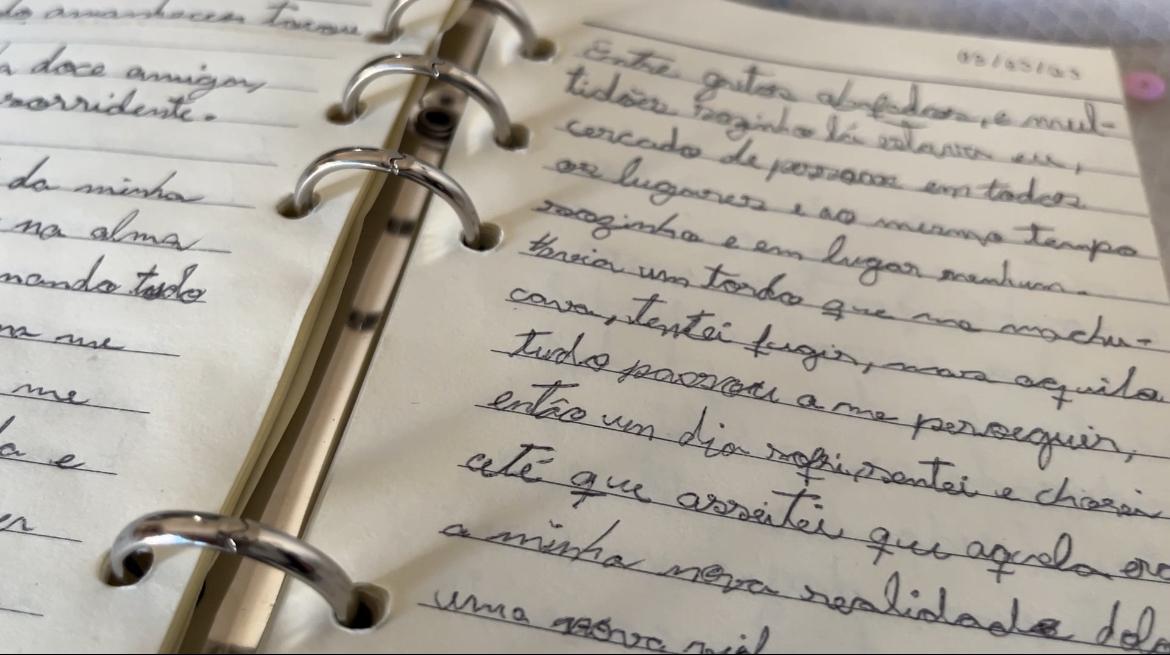 do amanhecer
doce amiga,
sorridente.
da minha
na alma
mando tudo
me
me
e
03/03/23
Entre gritos abafados, e mul-
tidões sozinho lá estava eu,
cercado de pessoas em todos
os lugares e ao mesmo tempo
sozinho e em lugar nenhum.
um tordo que me machu-
cava, tentei fugir, mas aquilo
tudo passou a me perseguir,
então um dia sofri, sentei e chorei
até que asseitei que aquela era
a minha nova realidade
uma